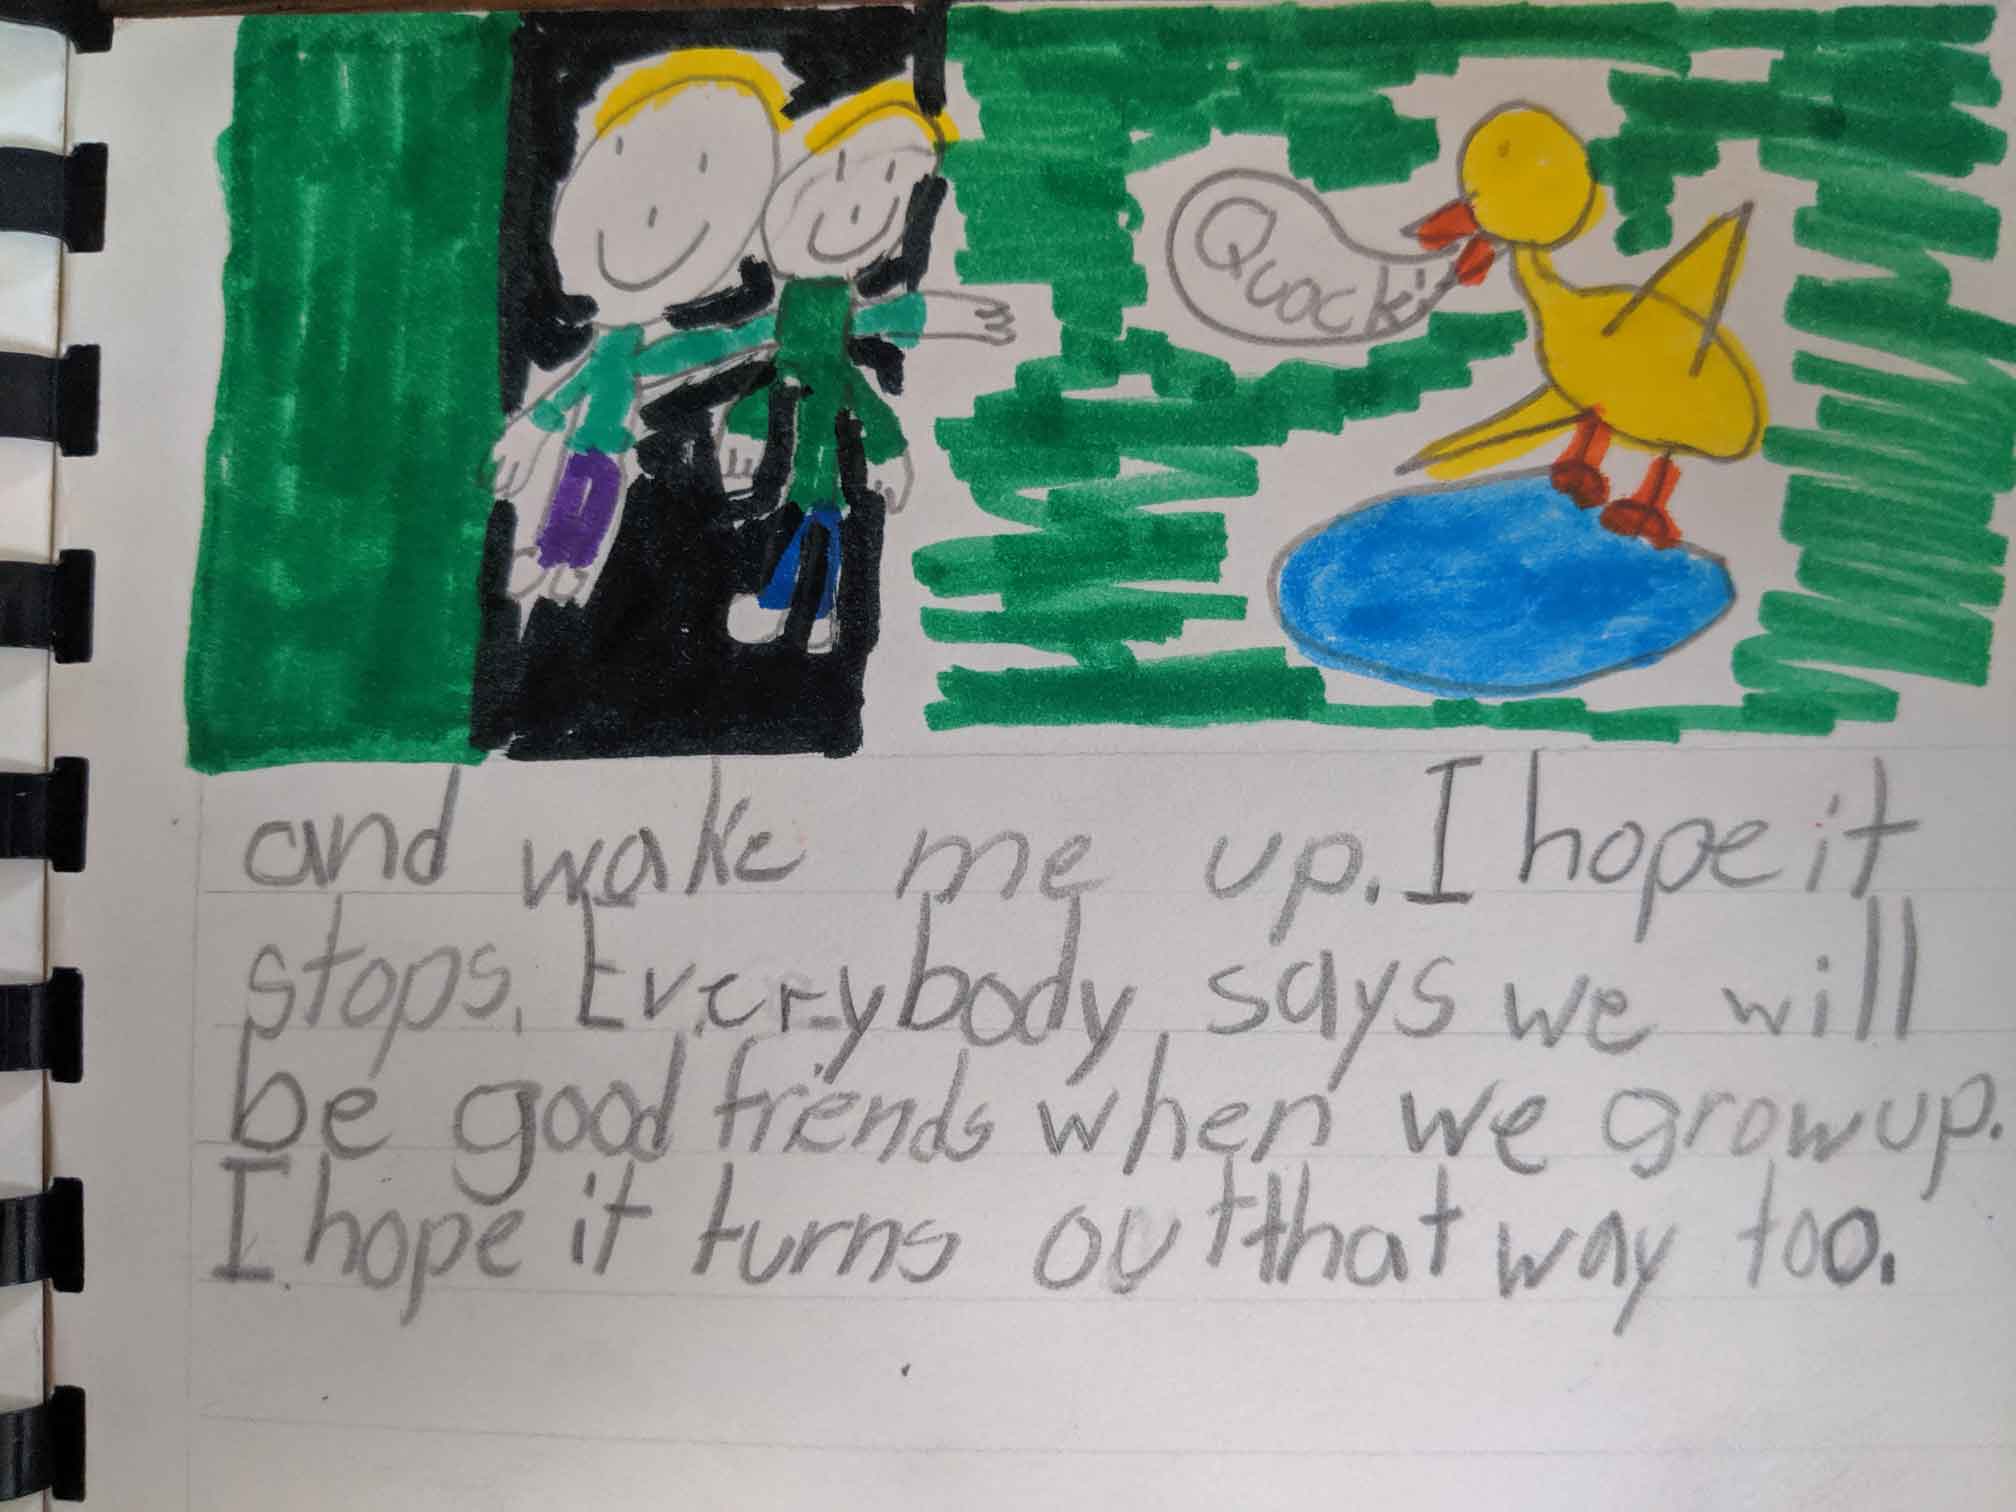 Quack!
and wake me up. I hope it
stops. Everybody says we will
be good friends when we grow up.
I hope it turns out that way too.